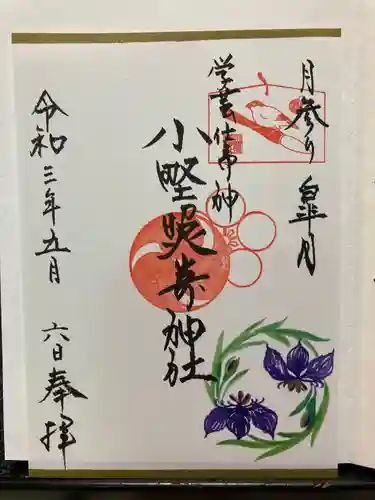 月参り 皐月
学芸仕事神
小野照崎神社
令和三年五月 六日 奉拝